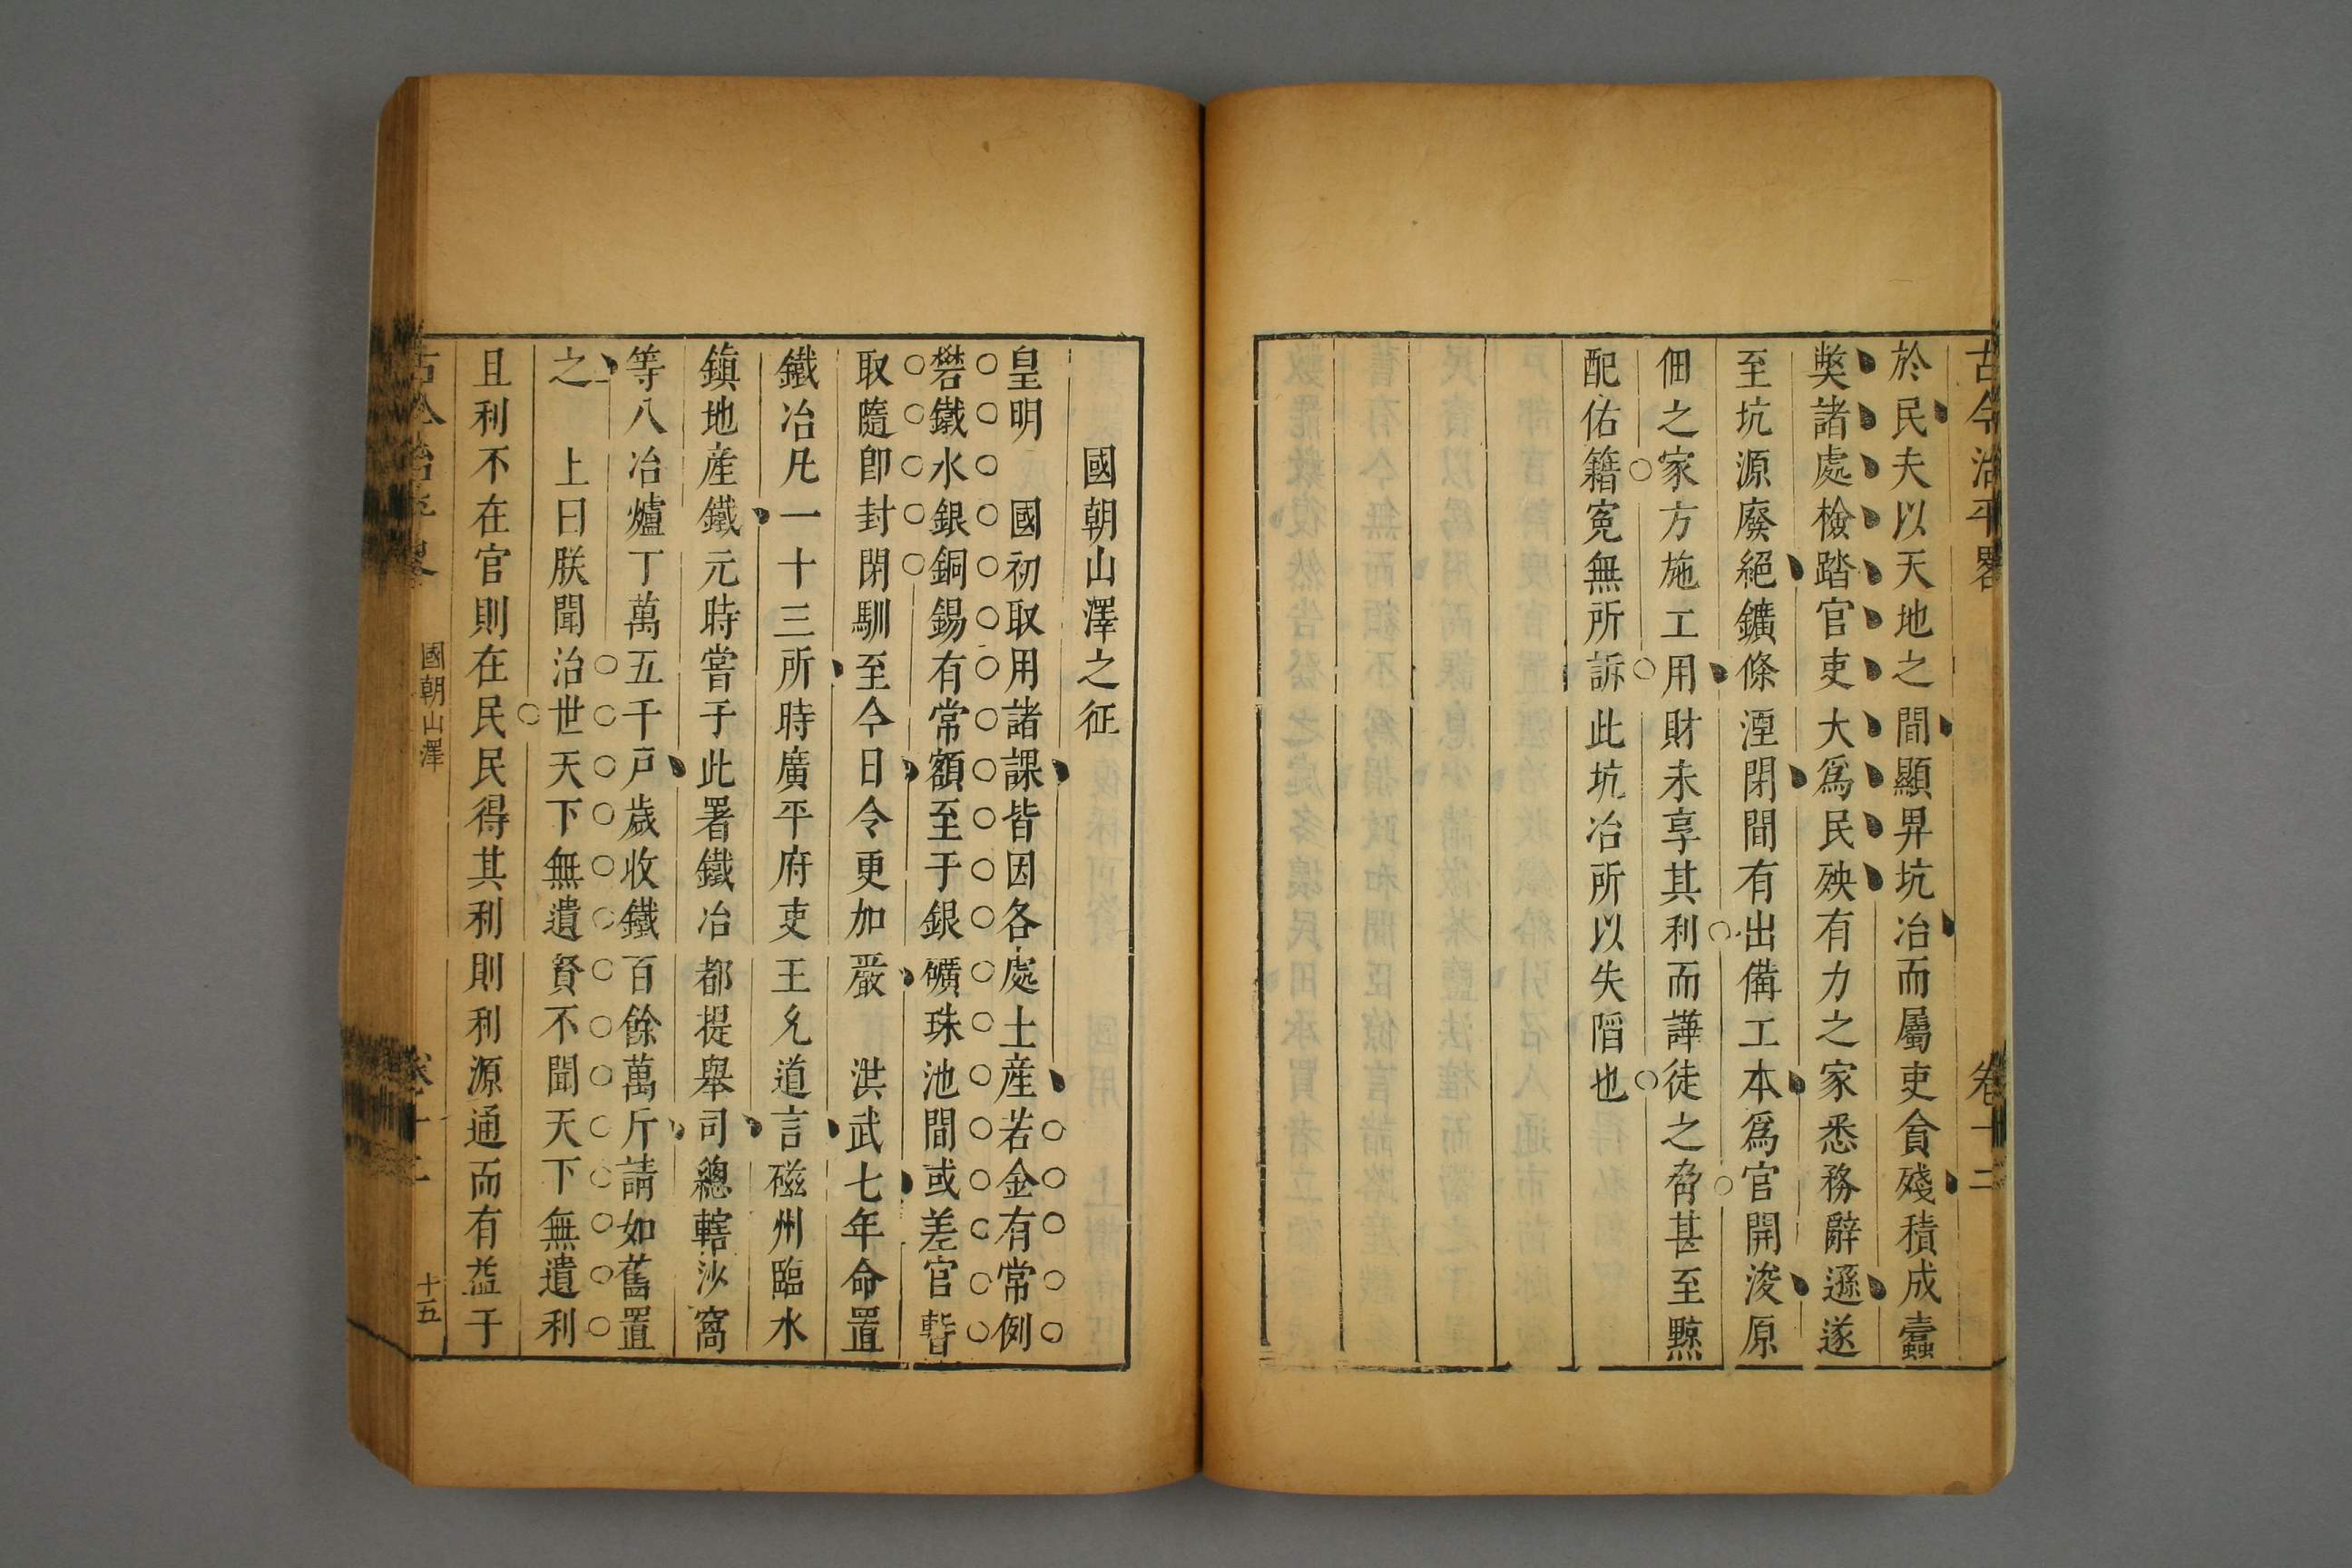 古今治平畧 卷十二
於民夫以天地之間顯畀坑冶而屬吏貪殘積成蠹
獘諸處檢踏官吏大爲民殃有力之家悉務辭遜遂
至坑源廢絕鑛條湮閉間有出備工本爲官開浚原
佃之家方施工用財未享其利而譁徒之脅甚至黥
配佑籍寃無所訴此坑冶所以失陷也
國朝山澤之征
皇明 國初取用諸課皆因各處土産若金有常例
礬鐵水銀銅錫有常額至于銀礦珠池間或差官暫
取隨卽封閉馴至今日令更加嚴 洪武七年命置
鐵冶凡一十三所時廣平府吏王允道言磁州臨水
鎮地産鐵元時嘗于此署鐵冶都提舉司總轄沙窩
等八冶爐丁萬五千戸歲收鐵百餘萬斤請如舊置
之 上曰朕聞治世天下無遺賢不聞天下無遺利
且利不在官則在民民得其利則利源通而有益于
古今治平畧 國朝山澤 卷十二 十五